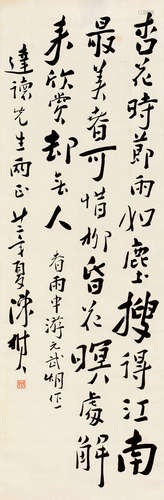 杏花時節雨如塵搜得江南
最美春可惜柳昏花暝處解
來欣賞卻無人
春雨中游元武湖作
達讀先生兩正 廿二年夏 陳樹人